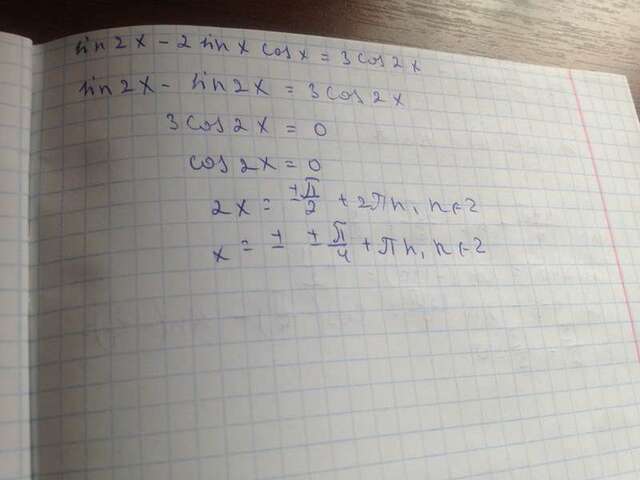 sin 2x - 2 sin x cos x = 3 cos 2x
sin 2x - sin 2x = 3 cos 2x
3 cos 2x = 0
cos 2x = 0
2x = ± π/2 + 2πn, n ∈ Z
x = ± ± π/4 + πn, n ∈ Z